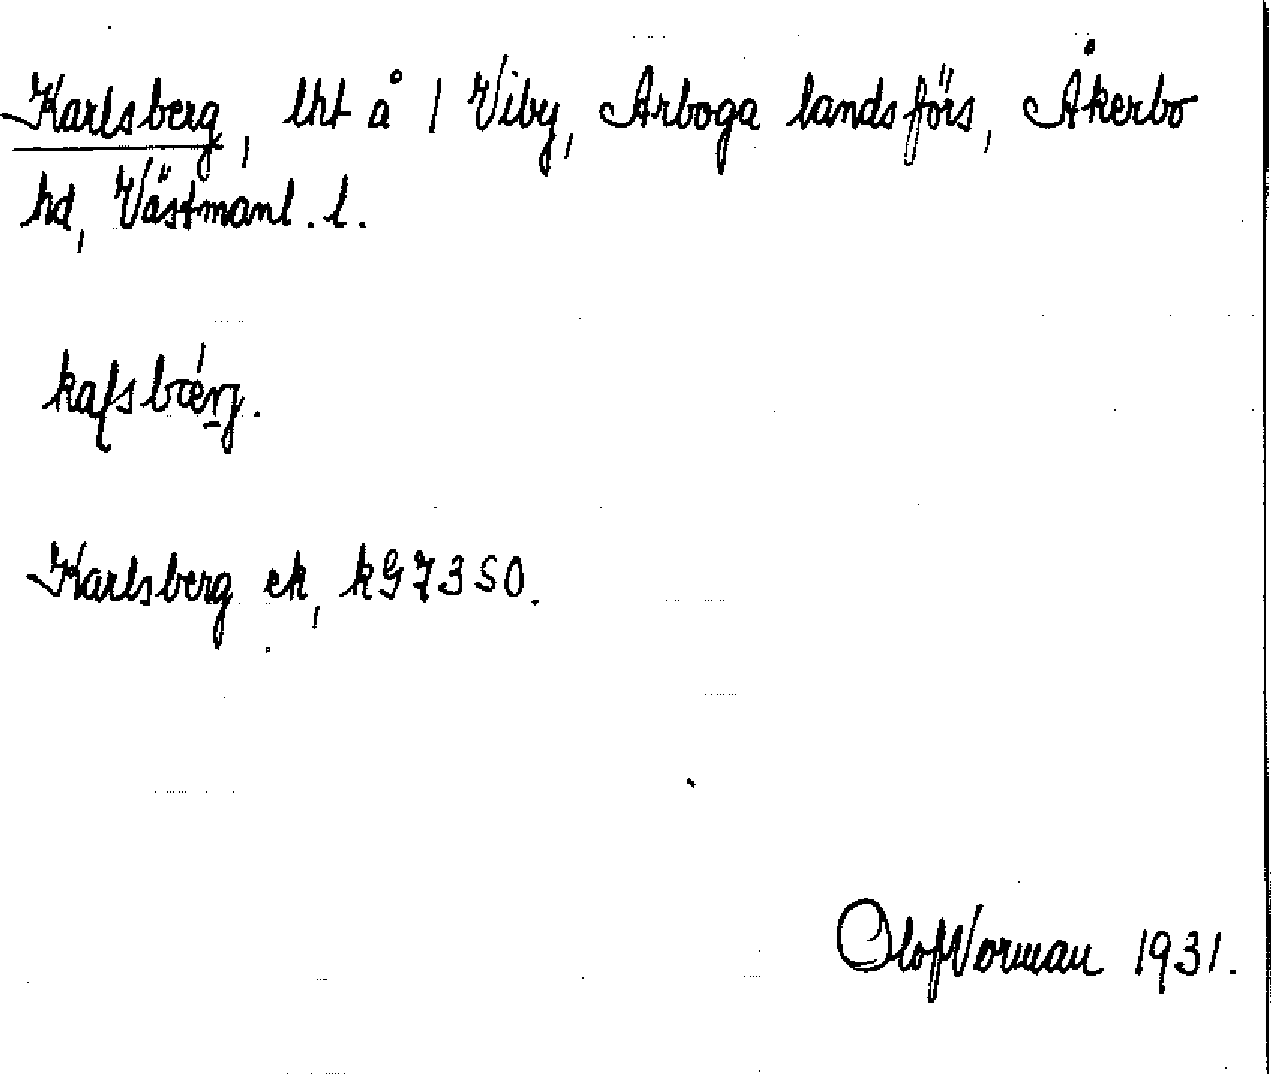 Karlsberg, lht å 1 Viby, Arboga landsförs, Åkerbo
hd, Västmanl. l.
kaſsbærj.
Karlsberg ek, kG7350.
Olof Norman 1931.